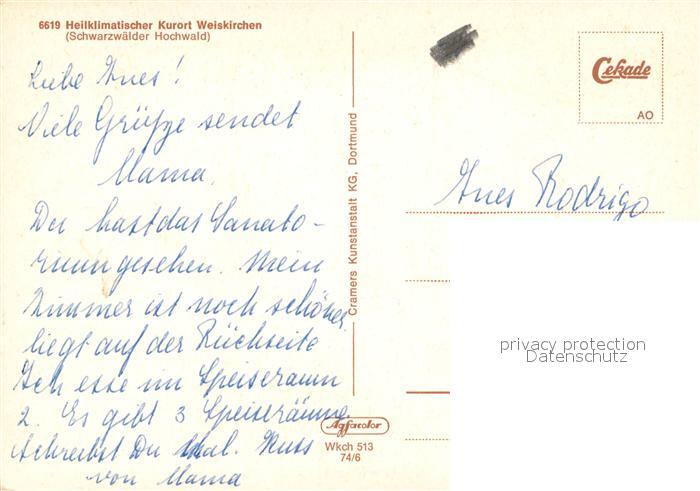 6619 Heilklimatischer Kurort Weiskirchen
(Schwarzwälder Hochwald)
Liebe Ines!
Viele Grüße sendet
Mama.
Du hast das Sanato-
rium gesehen. Mein
Zimmer ist noch schöner,
liegt auf der Rückseite
Ich esse im Speiseraum
2. Es gibt 3 Speiseräume.
Schreibst Du mal. Kuss
von Mama
Cramers Kunstanstalt KG, Dortmund
Agfacolor
Wkch 513
74/6
Cekade
AO
Ines Rodrigo
privacy protection
Datenschutz